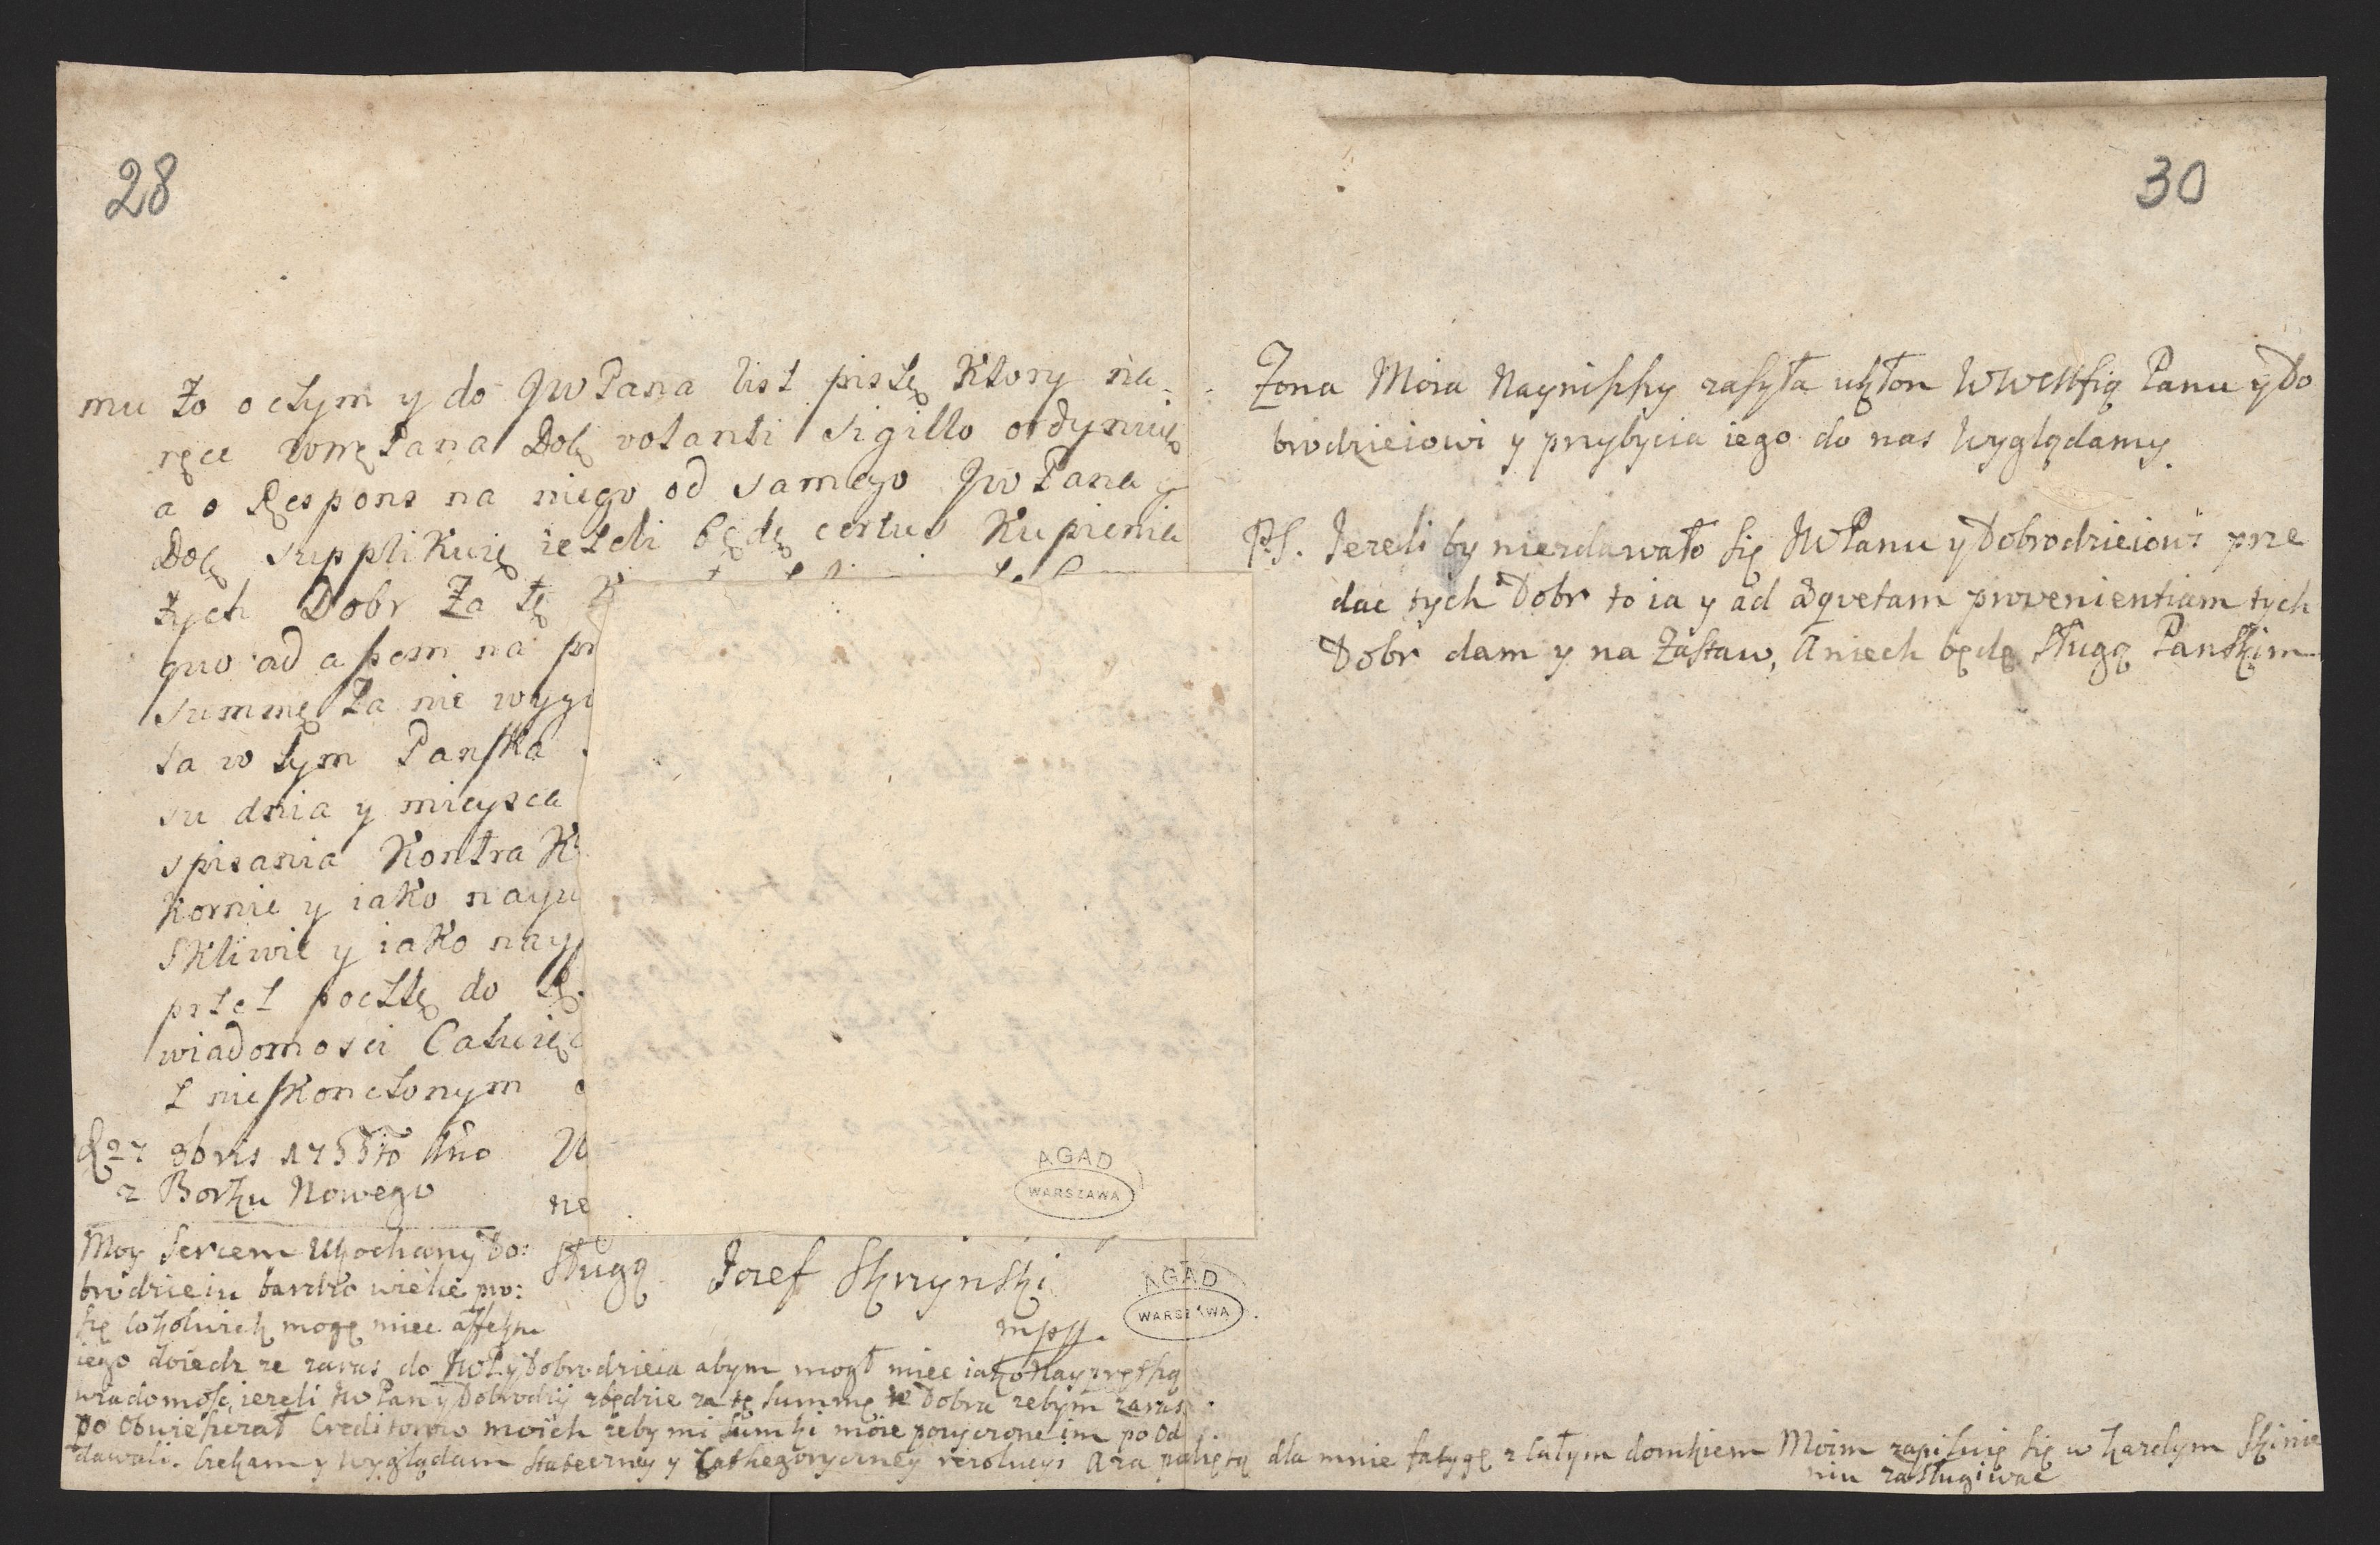 28
mu zo o czym y do JWPana list piszę Ktory na
ręce WMPana Dobę volanti sigillo ordynuię
a o Respons na niego od samego JWPana y
Dobę supplikuię iezeli będę certus Kupienia
tych Dobr Za tę
quo ad assem na pr
summę Za nie wygi
ta w tym Panska
su dnia y mieysca
spisania Kontrak
Kornie y iako nayu
skliwie y iako nayp
przez pocztę do
wiadomosci Całuię
z nieskonczonym
27 9bris 1755to Ano
z Borku Nowego
ne
Sługą Jozef Skrzynski
mpp.
Moy Sercem Ukochany Do:
brodzieiu bardzo wielie pro:
szę cokolwiek mogę miec affektu
iego doiedz ze zaras do JWP y Dobrodzieia abym mogł miec iako Nayprętką
wiadomość, iezeli JWPan y Dobrodziy zbędzie za tę summę te Dobra zebym zaras
po Obwieszczał Creditorow moich zeby mi sumki moie pozyczone im po Od
dawali. Czekam y wyglądam stateczney y Cathegoryczney rezolucyi A za podiętą dla mnie fatygę z całym domkiem Moim zapisuię się w kazdym Skinie
niu zasługiwac
AGAD
WARSZAWA
AGAD
WARSZAWA
30
Zona Moia Nayniszszy zasyła ukłon WWMMścią Panu y Do
brodzieiowi y przybycia iego do nas Wyglądamy.
PS. Jezeli by niezdawało się JWPanu y Dobrodzieiowi prze
dac tych Dobr to ia y ad adqvetam provenientiam tych
Dobr dam y na Zastaw, A niech będę Sługą Panskim